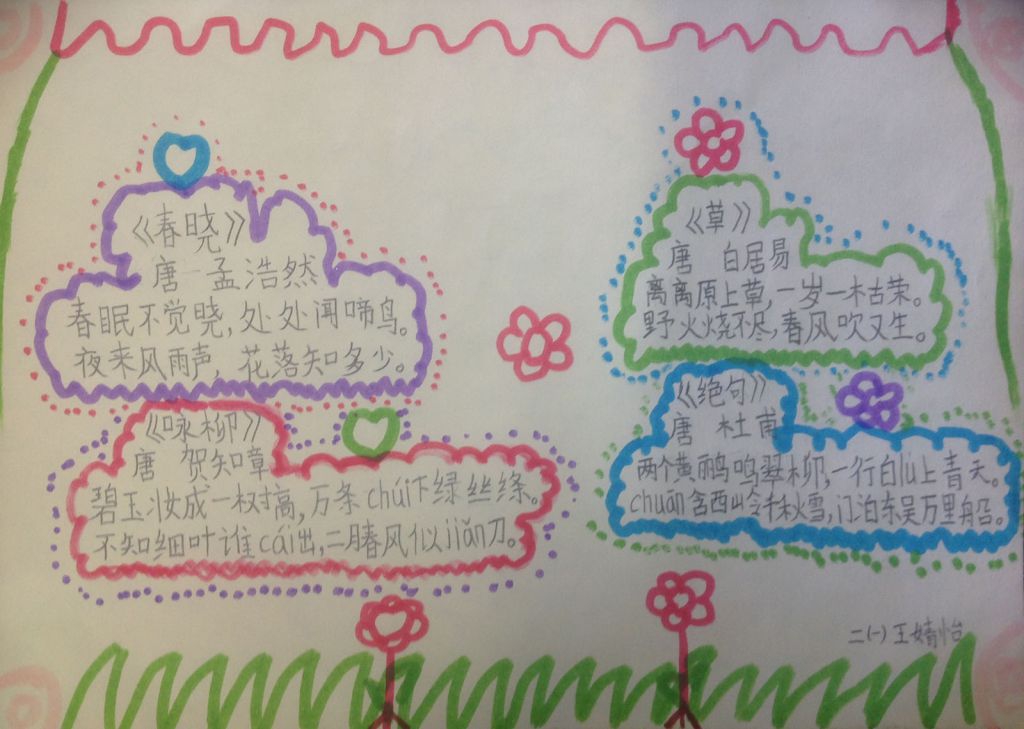 《春晓》
唐 孟浩然
春眠不觉晓,处处闻啼鸟。
夜来风雨声,花落知多少。
《咏柳》
唐 贺知章
碧玉妆成一树高,万条chuí下绿丝绦。
不知细叶谁cái出,二月春风似jiǎn刀。
《草》
唐 白居易
离离原上草,一岁一枯荣。
野火烧不尽,春风吹又生。
《绝句》
唐 杜甫
两个黄鹂鸣翠柳,一行白lù上青天。
chuān含西山千秋雪,门泊东吴万里船。
二(一)王婧怡